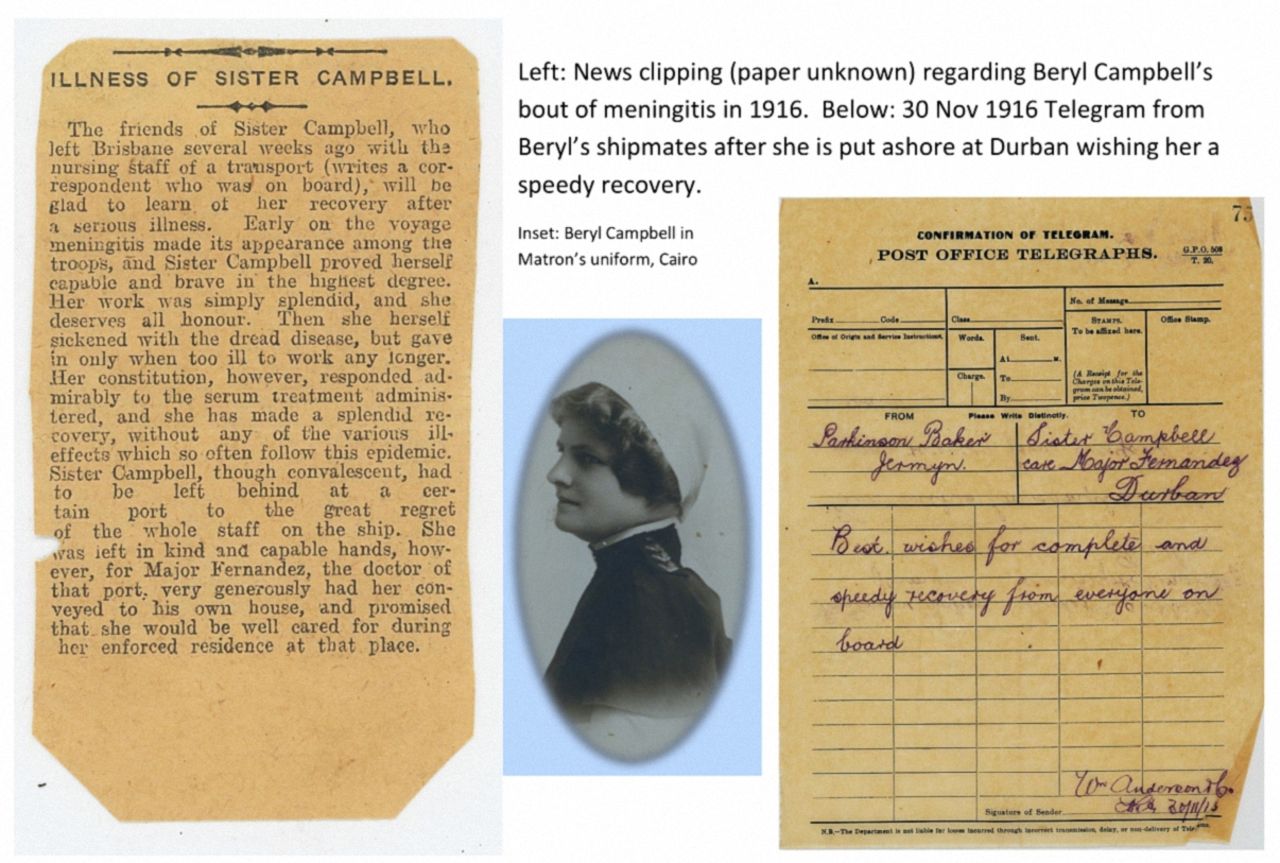 ILLNESS OF SISTER CAMPBELL.
The friends of Sister Campbell, who
left Brisbane several weeks ago with the
nursing staff of a transport (writes a cor-
respondent who was on board), will be
glad to learn of her recovery after
a serious illness. Early on the voyage
meningitis made its appearance among the
troops, and Sister Campbell proved herself
capable and brave in the highest degree.
Her work was simply splendid, and she
deserves all honour. Then she herself
sickened with the dread disease, but gave
in only when too ill to work any longer.
Her constitution, however, responded ad-
mirably to the serum treatment adminis-
tered, and she has made a splendid re-
covery, without any of the various ill-
effects which so often follow this epidemic.
Sister Campbell, though convalescent, had
to be left behind at a cer-
tain port to the great regret
of the whole staff on the ship. She
was left in kind and capable hands, how-
ever, for Major Fernandez, the doctor of
that port, very generously had her con-
veyed to his own house, and promised
that she would be well cared for during
her enforced residence at that place.
Left: News clipping (paper unknown) regarding Beryl Campbell's
bout of meningitis in 1916. Below: 30 Nov 1916 Telegram from
Beryl's shipmates after she is put ashore at Durban wishing her a
speedy recovery.
Inset: Beryl Campbell in
Matron's uniform, Cairo
75
CONFIRMATION OF TELEGRAM.
POST OFFICE TELEGRAPHS.
G.P.O. 508
T. 20.
A.
No. of Message
Prefix Code
Class
STAMPS.
To be affixed here.
Office Stamp.
Office of Origin and Service Instructions.
Words.
Sent.
At M.
Charge.
To
By
(A Receipt for the
Charges on this Tele-
gram can be obtained,
price Twopence.)
FROM Please Write Distinctly. TO
Parkinson Baker
Jermyn.
Sister Campbell
care Major Fernandez
Durban
Best wishes for complete and
speedy recovery from everyone on
board
Wm Anderson & Co.
Signature of Sender
30/11/16
N.B.—The Department is not liable for losses incurred through incorrect transmission, delay, or non-delivery of